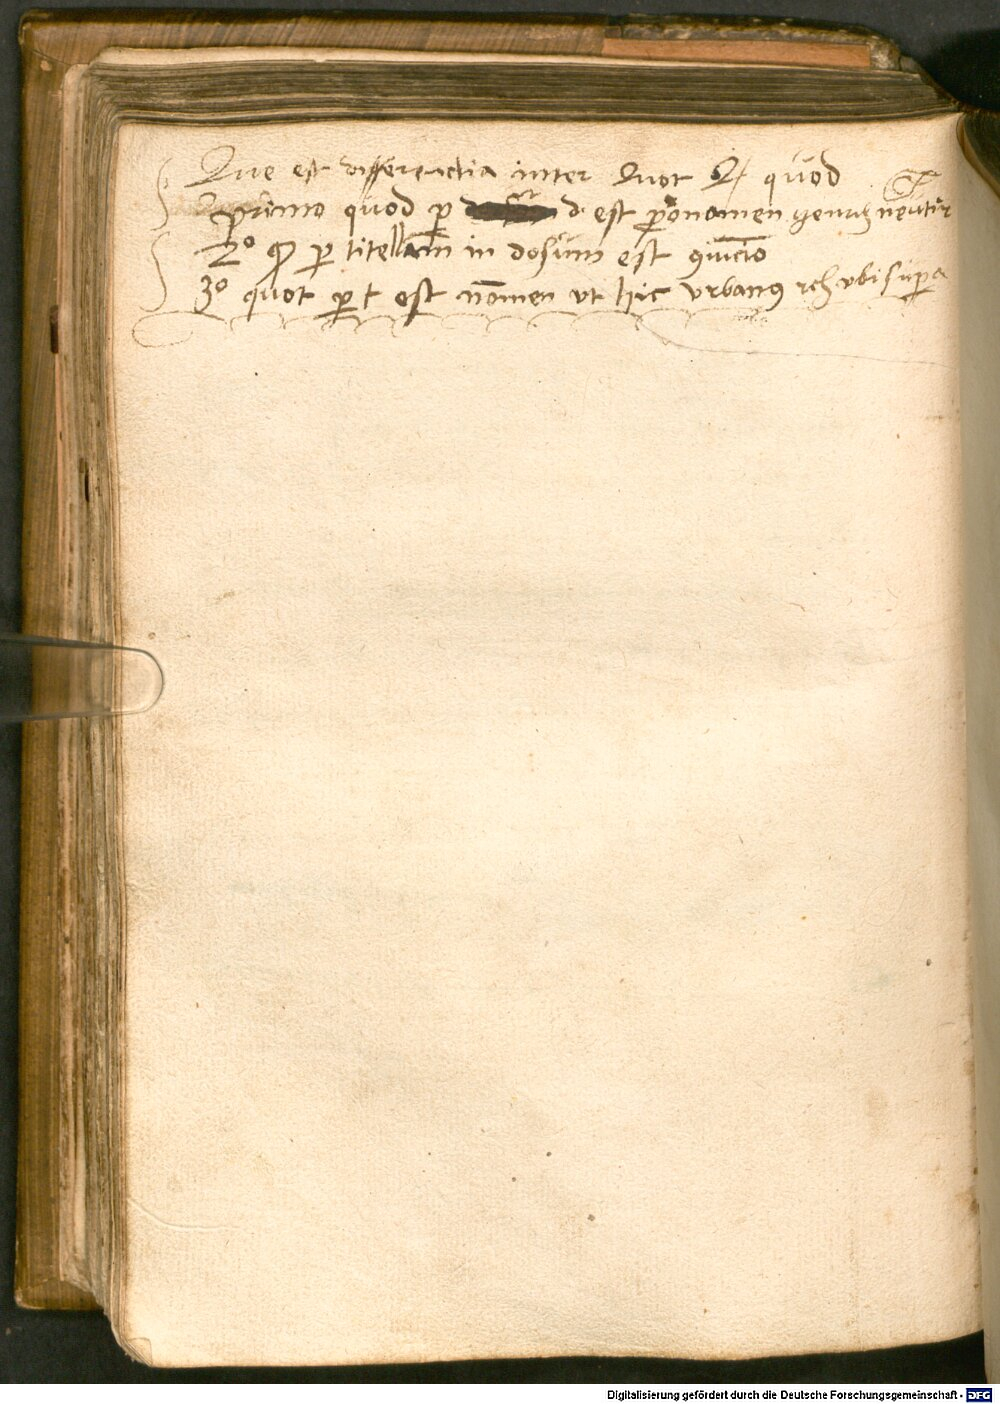 Que est differenctia inter Quot Qꝫ quod
primo quod ꝑ d est ꝓnomen neutri
2º ꝙ ꝑ titellam in dosum est ꝯiūctio
3º quot ꝑ t est nomen vt hic vrbanꝰ vbi supra
Digitalisierung gefördert durch die Deutsche Forschungsgemeinschaft - DFG